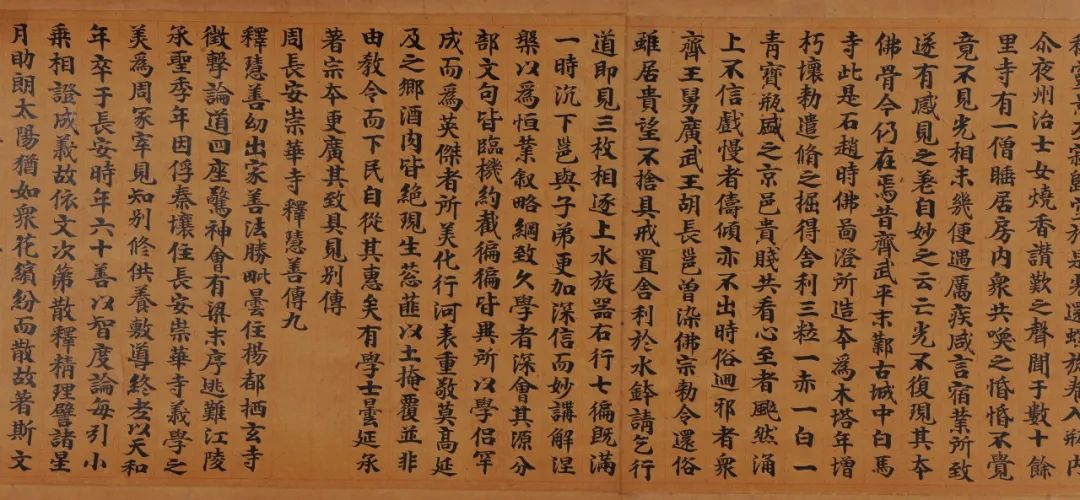 於是還螺旋卷入瓶內
尒夜州治士女燒香讚歎之聲聞于數十餘
里寺有一僧睡居房內衆共喚之惛惛不覺
竟不見光相未幾便遇厲疾咸言宿業所致
遂有感見之差自妙之云云光不復現其本
佛骨今仍在焉昔齊武平末鄴古城中白馬
寺此是石趙時佛啚澄所造本爲木塔年增
朽壞勅遣脩之掘得舍利三粒一赤一白一
青寶瓶盛之京邑貴賤共看心至者颷然涌
上不信戲慢者儔傾亦不出時俗迴邪者衆
齊王舅廣武王胡長邕曾染佛宗勅令還俗
雖居貴望不捨具戒置舍利於水鉢請乞行
道即見三枚相逐上水旋器右行七徧旣滿
一時沉下邕與子弟更加深信而妙講解涅
槃以爲恒業叙略綱致久學者深會其源分
部文句皆臨機約截徧徧皆異所以學侶罕
成而爲英傑者所美化行河表重敬莫高延
及之鄉酒肉皆絕現生葱韮以土掩覆並非
由教令而下民自從其惠矣有學士曇延承
著宗本更廣其致具見別傳
周長安崇華寺釋慧善傳九
釋慧善幼出家善法勝毗曇住楊都栖玄寺
徵擊論道四座驚神會有梁末序逃難江陵
承聖季年因俘秦壤住長安崇華寺義學之
美爲周冢宰見知別修供養敷導終老以天和
年卒于長安時年六十善以智度論每引小
乘相證成義故依文次第散釋精理譬諸星
月助朗太陽猶如衆花繽紛而散故著斯文